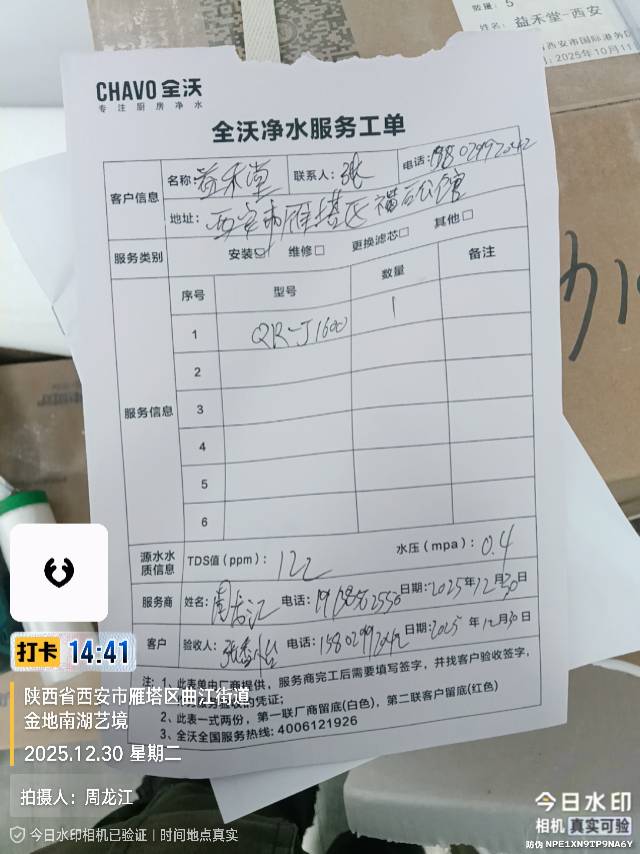 数量： 5
姓名： 益禾堂-西安
西安市国际港务区
2025年10月11
CHAVO 全沃
专 注 厨 房 净 水
全沃净水服务工单
客户信息 名称: 益禾堂 联系人: 张 电话:
地址: 西安市雁塔区 公馆
服务类别 安装☑ 维修□ 更换滤芯□ 其他□
服务信息 序号 型号 数量 备注
1 QR-J1600 1
2
3
4
5
6
源水水质信息 TDS值（ppm）: 122 水压（mpa）: 0.4
服务商 姓名: 周龙江 电话: 日期: 2025年12月30日
客户 验收人: 电话: 日期: 2025年12月30日
注: 1、此表单由厂商提供，服务商完工后需要填写签字，并找客户验收签字，
的凭证；
2、此表一式两份，第一联厂商留底(白色)，第二联客户留底(红色)
3、全沃全国服务热线: 4006121926
打卡 14:41
陕西省西安市雁塔区曲江街道
金地南湖艺境
2025.12.30 星期二
拍摄人：周龙江
今日水印相机已验证 | 时间地点真实
今日水印
相机 真实可验
防伪 NPE1XN9TP9NA6Y